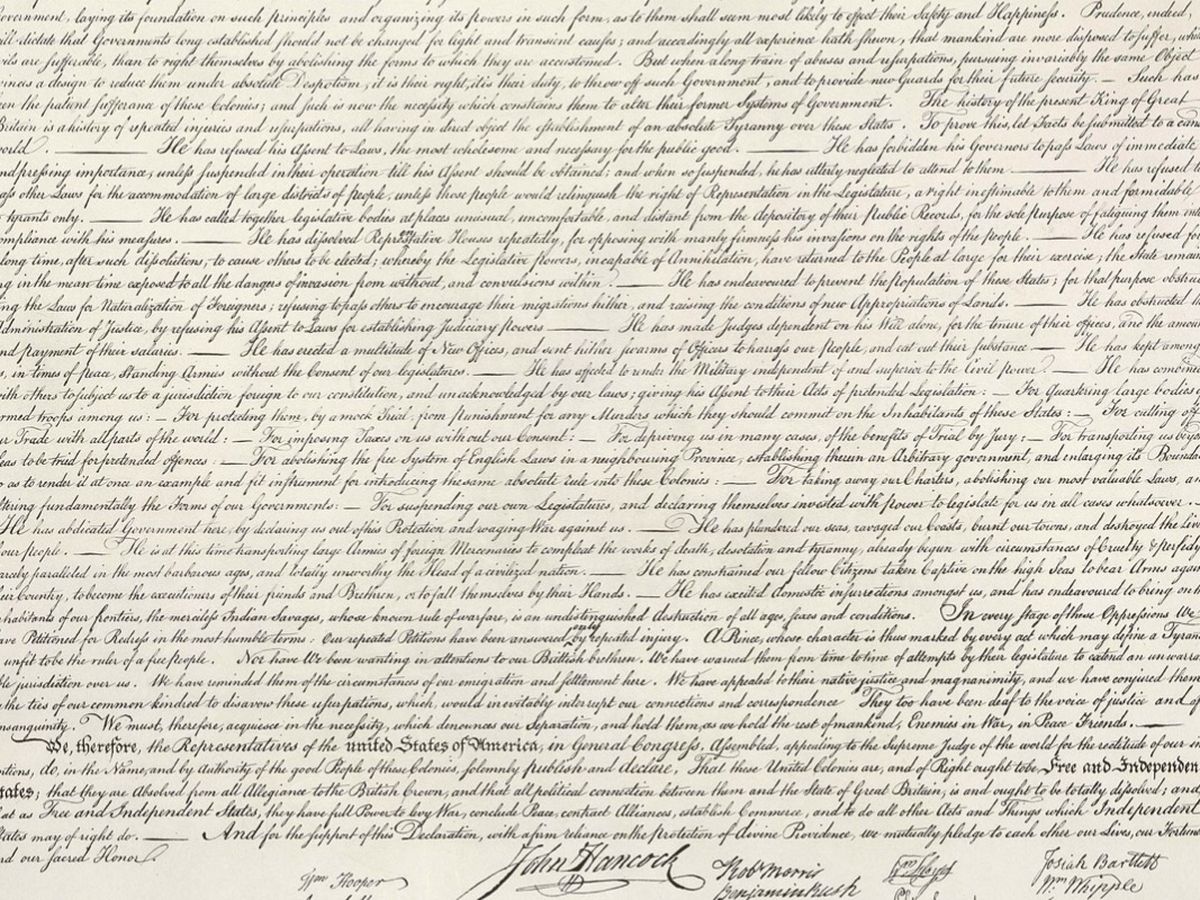 overnment, laying its foundation on such principles and organizing its powers in such form, as to them shall seem most likely to effect their Safety and Happiness. Prudence, indeed,
ill dictate that Governments long established should not be changed for light and transient causes; and accordingly all experience hath shewn, that mankind are more disposed to suffer, whil
vils are sufferable, than to right themselves by abolishing the forms to which they are accustomed. But when a long train of abuses and usurpations, pursuing invariably the same Object
vinces a design to reduce them under absolute Despotism, it is their right, it is their duty, to throw off such Government, and to provide new Guards for their future security. — Such has
een the patient sufferance of these Colonies; and such is now the necessity which constrains them to alter their former Systems of Government. The history of the present King of Great
Britain is a history of repeated injuries and usurpations, all having in direct object the establishment of an absolute Tyranny over these States. To prove this, let Facts be submitted to a cand
world. — He has refused his Assent to Laws, the most wholesome and necessary for the public good. — He has forbidden his Governors to pass Laws of immediate
nd pressing importance, unless suspended in their operation till his Assent should be obtained; and when so suspended, he has utterly neglected to attend to them — He has refused t
ass other Laws for the accommodation of large districts of people, unless those people would relinquish the right of Representation in the Legislature, a right inestimable to them and formidable
o tyrants only. — He has called together legislative bodies at places unusual, uncomfortable, and distant from the depository of their Public Records, for the sole purpose of fatiguing them int
ompliance with his measures. — He has dissolved Representative Houses repeatedly, for opposing with manly firmness his invasions on the rights of the people. — He has refused for
long time, after such dissolutions, to cause others to be elected; whereby the Legislative powers, incapable of Annihilation, have returned to the People at large for their exercise; the State remain
ng in the mean time exposed to all the dangers of invasion from without, and convulsions within. — He has endeavoured to prevent the population of these States; for that purpose obstru
ing the Laws for Naturalization of Foreigners; refusing to pass others to encourage their migrations hither, and raising the conditions of new Appropriations of Lands. — He has obstructed t
Administration of Justice, by refusing his Assent to Laws for establishing Judiciary powers — He has made Judges dependent on his Will alone, for the tenure of their offices, and the amou
nd payment of their salaries. — He has erected a multitude of New Offices, and sent hither swarms of Officers to harrass our people, and eat out their substance — He has kept among
s, in times of peace, Standing Armies without the Consent of our legislatures. — He has affected to render the Military independent of and superior to the Civil power. — He has combine
with others to subject us to a jurisdiction foreign to our constitution, and unacknowledged by our laws; giving his Assent to their Acts of pretended Legislation: — For Quartering large bodies
rmed troops among us: — For protecting them, by a mock Trial, from punishment for any Murders which they should commit on the Inhabitants of these States: — For cutting off
ur Trade with all parts of the world: — For imposing Taxes on us without our Consent: — For depriving us in many cases, of the benefits of Trial by Jury: — For transporting us beyo
eas to be tried for pretended offences: — For abolishing the free System of English Laws in a neighbouring Province, establishing therein an Arbitrary government, and enlarging its Bounda
o as to render it at once an example and fit instrument for introducing the same absolute rule into these Colonies: — For taking away our Charters, abolishing our most valuable Laws, an
ltering fundamentally the Forms of our Governments: — For suspending our own Legislatures, and declaring themselves invested with power to legislate for us in all cases whatsoever. —
He has abdicated Government here, by declaring us out of his Protection and waging War against us. — He has plundered our seas, ravaged our Coasts, burnt our towns, and destroyed the liv
our people. — He is at this time transporting large Armies of foreign Mercenaries to compleat the works of death, desolation and tyranny, already begun with circumstances of Cruelty & perfidy
arcely paralleled in the most barbarous ages, and totally unworthy the Head of a civilized nation. — He has constrained our fellow Citizens taken Captive on the high Seas to bear Arms again
heir Country, to become the executioners of their friends and Brethren, or to fall themselves by their Hands. — He has excited domestic insurrections amongst us, and has endeavoured to bring on t
nhabitants of our frontiers, the merciless Indian Savages, whose known rule of warfare, is an undistinguished destruction of all ages, sexes and conditions. In every stage of these Oppressions We
ave Petitioned for Redress in the most humble terms: Our repeated Petitions have been answered only by repeated injury. A Prince, whose character is thus marked by every act which may define a Tyran
unfit to be the ruler of a free people. Nor have We been wanting in attentions to our Brittish brethren. We have warned them from time to time of attempts by their legislature to extend an unwarra
ble jurisdiction over us. We have reminded them of the circumstances of our emigration and settlement here. We have appealed to their native justice and magnanimity, and we have conjured them
y the ties of our common kindred to disavow these usurpations, which, would inevitably interrupt our connections and correspondence They too have been deaf to the voice of justice and of
onsanguinity. We must, therefore, acquiesce in the necessity, which denounces our Separation, and hold them, as we hold the rest of mankind, Enemies in War, in Peace Friends. —
We, therefore, the Representatives of the united States of America, in General Congress, Assembled, appealing to the Supreme Judge of the world for the rectitude of our in
ntions, do, in the Name, and by Authority of the good People of these Colonies, solemnly publish and declare, That these United Colonies are, and of Right ought to be Free and Independen
tates; that they are Absolved from all Allegiance to the British Crown, and that all political connection between them and the State of Great Britain, is and ought to be totally dissolved; and
hat as Free and Independent States, they have full Power to levy War, conclude Peace, contract Alliances, establish Commerce, and to do all other Acts and Things which Independent
States may of right do. — And for the support of this Declaration, with a firm reliance on the protection of divine Providence, we mutually pledge to each other our Lives, our Fortune
nd our sacred Honor.
John Hancock
Wm Hooper
Robt Morris
Benjamin Rush
Josiah Bartlett
Wm Whipple